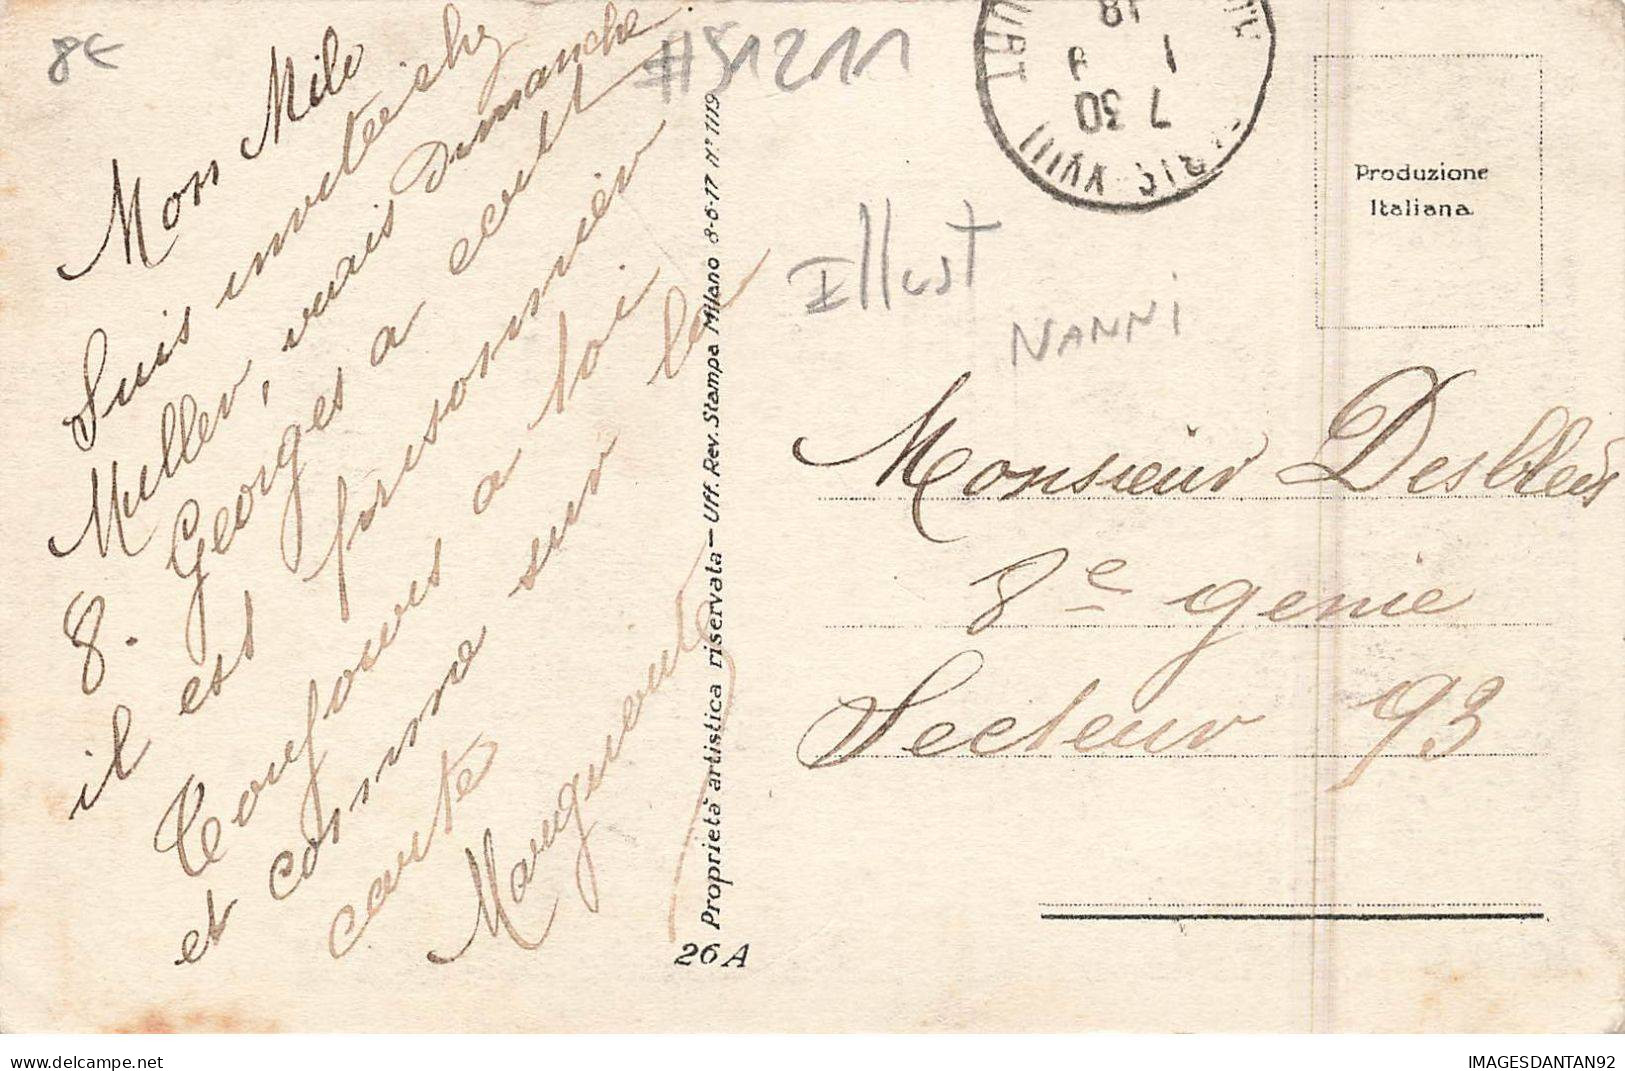 8€
#51211
Mon Milo
Suis invitée chez
Muller, vais Dimanche
8. Georges a écrit
il est prisonnier
Toujours à toi
et comme sur la
carte
Marguerite
Proprietà artistica riservata - Uff. Rev. Stampa Milano 8-6-17 N° 1119
26 A
18
1
7 30
PARIS XVIII
Illust
NANNI
Produzione
Italiana.
Monsieur Desbleds
8e genie
Secteur 93
delcampe.net
IMAGESDANTAN92